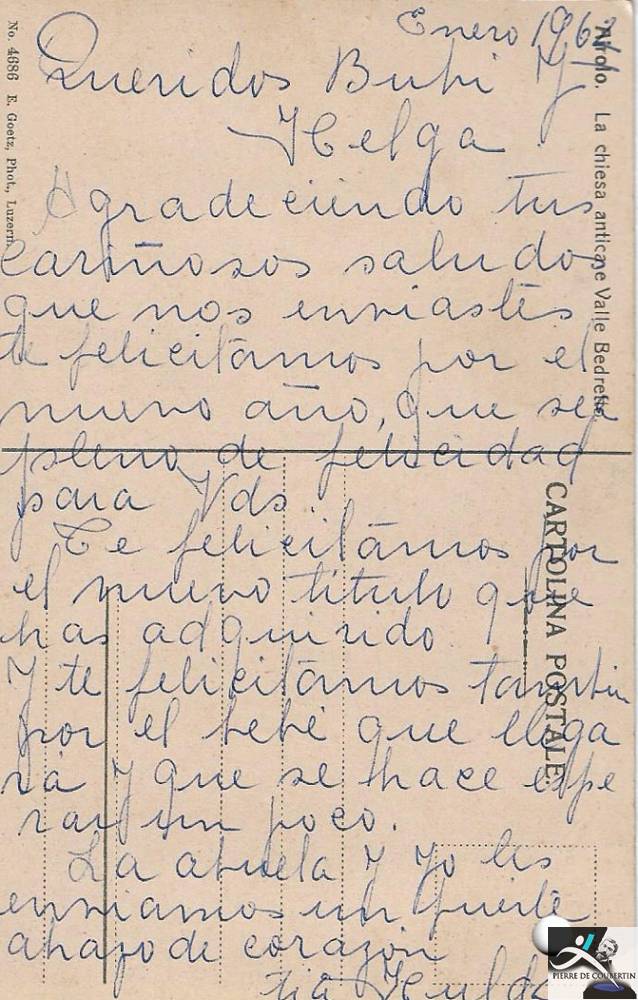 Enero 1961
Queridos Bubi y
Helga
Agradeciendo tus
cariñosos saludos
que nos enviastes
te felicitámos por el
nuevo año, que sea
pleno de felicidad
para Vds.
Te felicitámos por
el nuevo titulo que
has adquirido
Y te felicitámos tambien
por el bebé que llega
rá y que se hace espe
rar un poco.
La abuela y yo les
enviamos un fuerte
abrazo de corazón
tia Hulda
No. 4686 E. Goetz, Phot., Luzern.
Airolo. La chiesa antica e Valle Bedretto.
CARTOLINA POSTALE.
PIERRE DE COUBERTIN